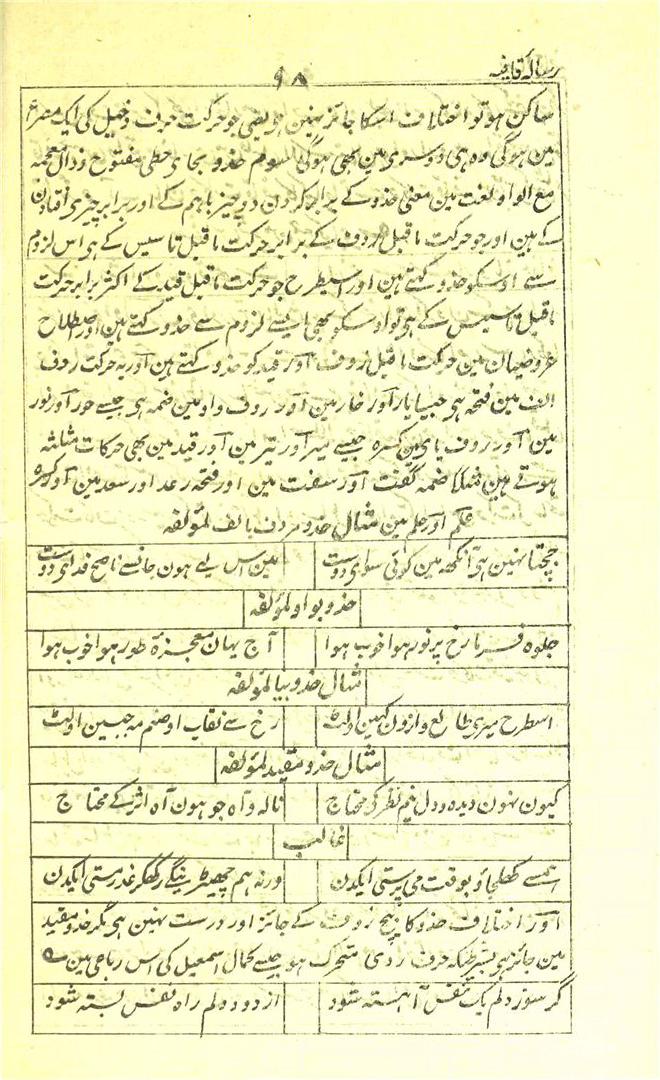 رسالۂ قافیہ
۹۸
ساکن ہو تو اختلاف اسکا جائز نہین ہی یعنی جو حرکت حرف دخیل کی ایک مصرع
مین ہوگی وہ ہی دوسری مین بھی ہوگی سوم حذو بحای حطی مفتوح و ذال معجمہ
مع الواو لغت مین معنی حذو کے برابر کردن دو چیز باہم کے اور برابر چیزی افتادن
کے ہین اور جو حرکت ماقبل ردف کے برابر حرکت ماقبل تاسیس کے ہی اس لزوم
سے اوسکو حذو کہتے ہین اور اسیطرح جو حرکت ماقبل قید کے اکثر برابر حرکت
ماقبل تاسیس کے ہی تو اوسکو بھی ایسے لزوم سے حذو کہتے ہین اور اصطلاح
عروضیان مین حرکت ماقبل ردف اور قید کو حذو کہتے ہین اور یہ حرکت ردف
الف مین فتحہ ہی جیسا یار اور خار مین اور ردف واو مین ضمہ ہی جیسے حور اور نور
مین اور ردف یا مین کسرہ جیسے میر اور تیر مین اور قید مین بھی حرکات مثلثہ
ہوتے ہین مثلا ضمہ گفت اور سفت مین اور فتحہ رعد اور سعد مین اور کسرہ
علم اور حلم مین مثال حذو مردف بالف لمؤلفہ
جچتا نہین ہی آنکھ مین کوئی سوای دوست مین اس لیے ہون جانسے ناصح فدای دوست
حذو بواو لمؤلفہ
جلوہ فرما رخ پر نور ہوا خوب ہوا آج یہان معجزۂ طور ہوا خوب ہوا
مثال حذو بیا لمؤلفہ
اسطرح میری طالع واژون کہین اولٹ رخ سے نقاب او صنم مہ جبین اولٹ
مثال حذو مقید لمؤلفہ
کیون نہون دیدہ و دل نیم نظر کی محتاج نالہ و آہ جو ہون آہ اثر کے محتاج
غالب
ہمسے کھلجاؤ بوقت می پرستی ایکدن ورنہ ہم چھیڑینگے رکھکر عذر مستی ایکدن
اور اختلاف حذو کا بیچ ردف کے جائز اور درست نہین ہی مگر حذو مقید
مین جائز ہی بشرطیکہ حرف روی متحرک ہو جیسے کمال اسمعیل کی اس رباعی مین ے
گر سوز دلم یک نفس آہستہ شود از دود دلم راہ نفس بستہ شود